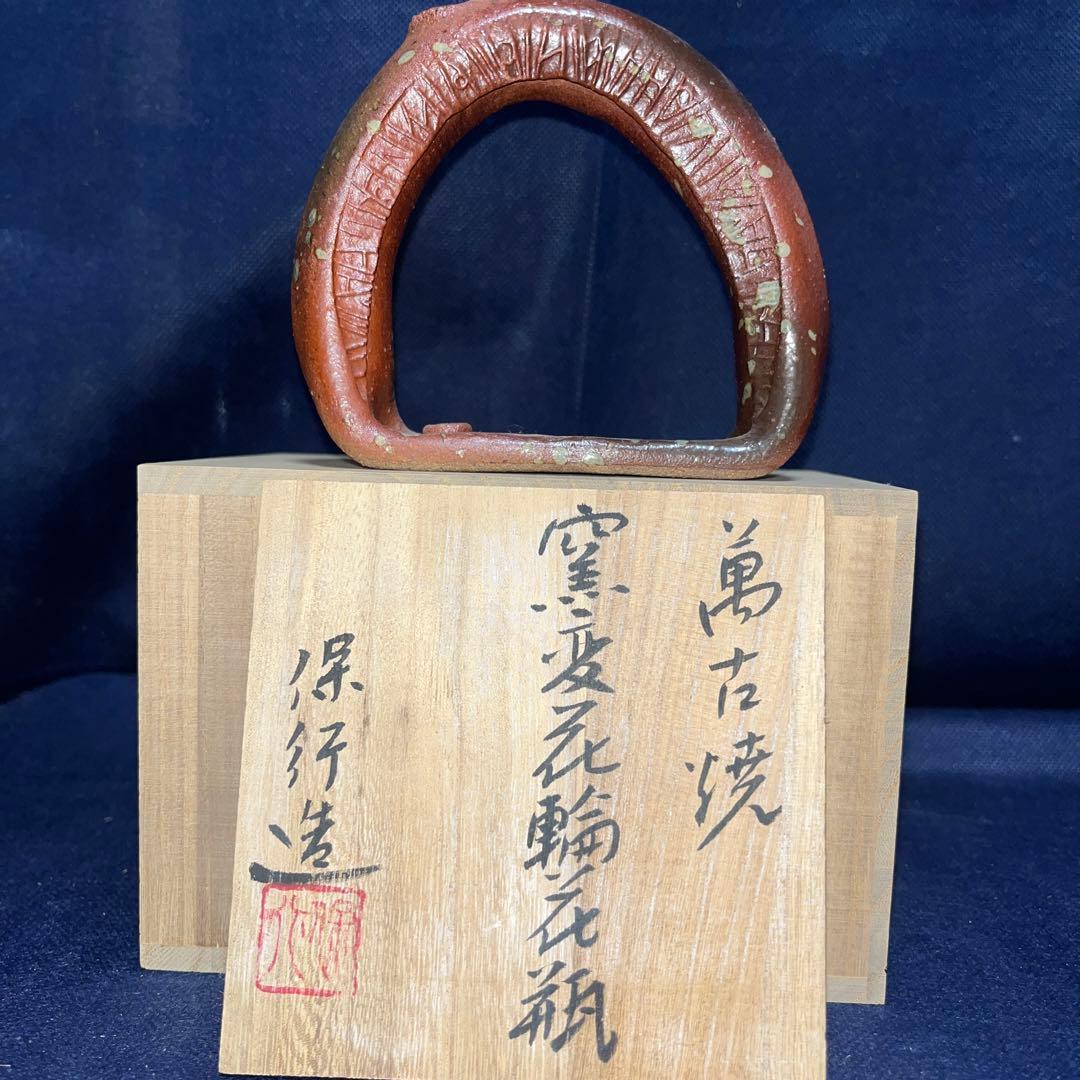 萬古焼
窯変花輪花瓶
保行造